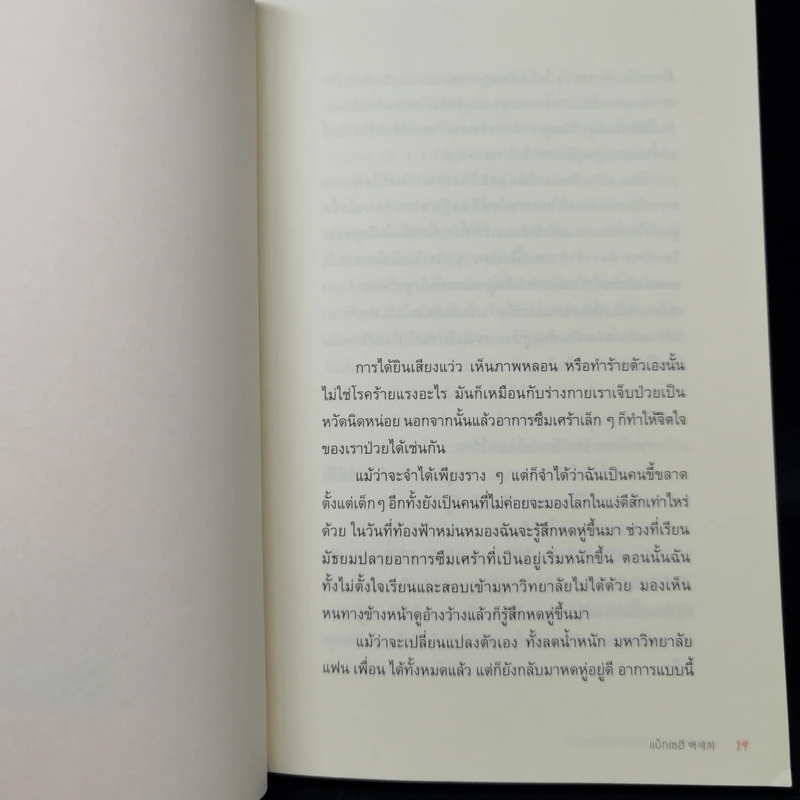 การได้ยินเสียงแว่ว เห็นภาพหลอน หรือทำร้ายตัวเองนั้น
ไม่ใช่โรคร้ายแรงอะไร มันก็เหมือนกับร่างกายเราเจ็บป่วยเป็น
หวัดนิดหน่อย นอกจากนั้นแล้วอาการซึมเศร้าเล็ก ๆ ก็ทำให้จิตใจ
ของเราป่วยได้เช่นกัน
แม้ว่าจะจำได้เพียงราง ๆ แต่ก็จำได้ว่าฉันเป็นคนขี้ขลาด
ตั้งแต่เด็กๆ อีกทั้งยังเป็นคนที่ไม่ค่อยจะมองโลกในแง่ดีสักเท่าไหร่
ด้วย ในวันที่ท้องฟ้าหม่นหมองฉันจะรู้สึกหดหู่ขึ้นมา ช่วงที่เรียน
มัธยมปลายอาการซึมเศร้าที่เป็นอยู่เริ่มหนักขึ้น ตอนนั้นฉัน
ทั้งไม่ตั้งใจเรียนและสอบเข้ามหาวิทยาลัยไม่ได้ด้วย มองเห็น
หนทางข้างหน้าดูอ้างว้างแล้วก็รู้สึกหดหู่ขึ้นมา
แม้ว่าจะเปลี่ยนแปลงตัวเอง ทั้งลดน้ำหนัก มหาวิทยาลัย
แฟน เพื่อน ได้ทั้งหมดแล้ว แต่ก็ยังกลับมาหดหู่อยู่ดี อาการแบบนี้
แบ็กเซฮี 백세희 19